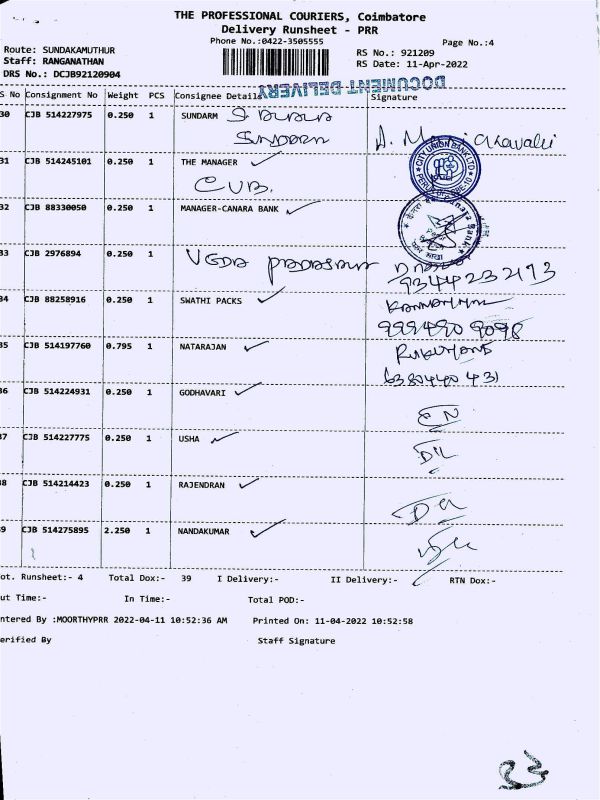 THE PROFESSIONAL COURIERS, Coimbatore
Delivery Runsheet - PRR
Phone No.:0422-3505555
Page No.:4
Route: SUNDAKAMUTHUR
Staff: RANGANATHAN
DRS No.: DCJB92120904
RS No.: 921209
RS Date: 11-Apr-2022
DOCUMENT DELIVERY
S No Consignment No Weight PCS Consignee Details Signature
30 CJB 514227975 0.250 1 SUNDARM
31 CJB 514245101 0.250 1 THE MANAGER
CUB.
CITY UNION BANK LTD
32 CJB 88330050 0.250 1 MANAGER-CANARA BANK
33 CJB 2976894 0.250 1
9344232173
34 CJB 88258916 0.250 1 SWATHI PACKS
999490 9098
35 CJB 514197760 0.795 1 NATARAJAN
6380440431
36 CJB 514224931 0.250 1 GODHAVARI
37 CJB 514227775 0.250 1 USHA
38 CJB 514214423 0.250 1 RAJENDRAN
39 CJB 514275895 2.250 1 NANDAKUMAR
ot. Runsheet:- 4 Total Dox:- 39 I Delivery:- II Delivery:- RTN Dox:-
ut Time:- In Time:- Total POD:-
ntered By :MOORTHYPRR 2022-04-11 10:52:36 AM Printed On: 11-04-2022 10:52:58
erified By Staff Signature
23